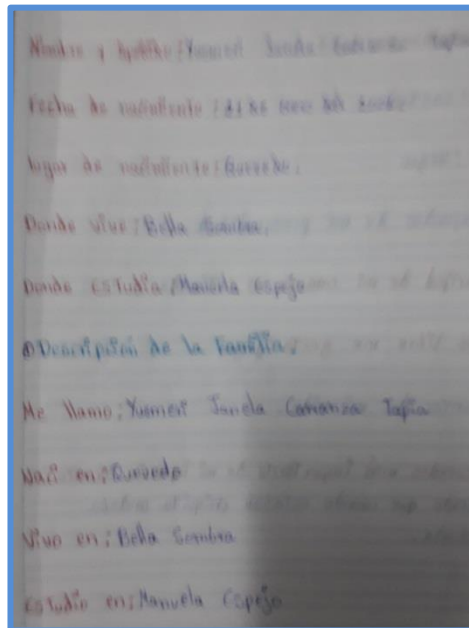 Nombre y Apellido: Yusmeri Janela Tapia
Fecha de nacimiento: de del
lugar de nacimiento: Quevedo.
Donde vive: Bella Sombra.
Donde estudia: Manuela Espejo
Descripción de la Familia.
Me llamo: Yusmeri Janela Carranza Tapia
Nací en: Quevedo
Vivo en: Bella Sombra
estudio en: Manuela Espejo